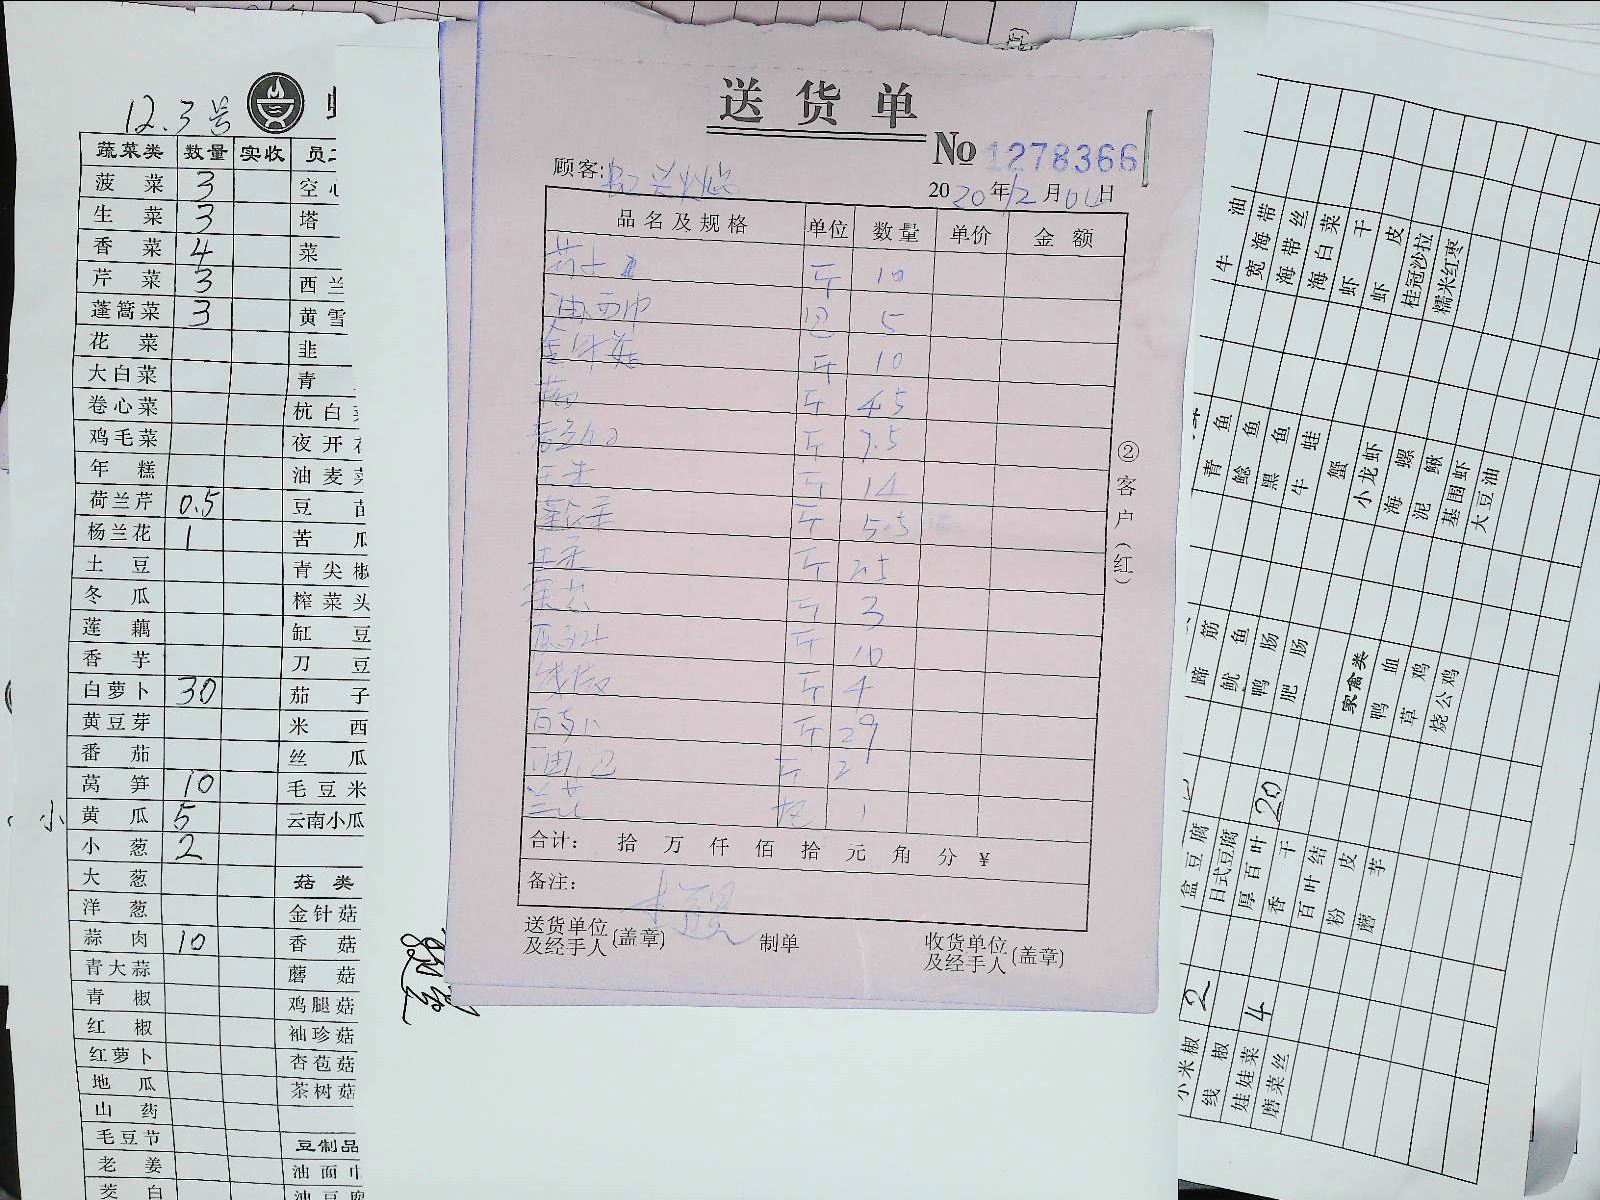 12.3号
蔬菜类 数量 实收
菠菜 3 空
生菜 3 塔
香菜 4 菜
芹菜 3 西兰
蓬蒿菜 3 黄雪
花菜 韭
大白菜 青
卷心菜 杭白
鸡毛菜 夜开
年糕 油麦菜
荷兰芹 0.5 豆苗
杨兰花 1 苦瓜
土豆 青尖椒
冬瓜 榨菜头
莲藕 缸豆
香芋 刀豆
白萝卜 30 茄子
黄豆芽 米西
番茄 丝瓜
莴笋 10 毛豆米
黄瓜 5 云南小瓜
小葱 2
大葱 菇类
洋葱 金针菇
蒜肉 10 香菇
青大蒜 蘑菇
青椒 鸡腿菇
红椒 袖珍菇
红萝卜 杏苞菇
地瓜 茶树菇
山药
毛豆节 豆制品
老姜 油面巾
茭白
小
送货单
No 1278366
顾客:
2020年12月04日
品名及规格 单位 数量 单价 金额
斤 10
油面巾 包 5
金针菇 斤 10
斤 45
斤 7.5
生菜 斤 14
斤 5.5
斤 2.5
斤 3
斤 10
线椒 斤 4
白萝卜 斤 29
油泡 斤 2
兰花 1
合计: 拾 万 仟 佰 拾 元 角 分 ¥
备注:
送货单位及经手人(盖章) 制单 收货单位及经手人(盖章)
②客户(红)
牛油
宽海带
海带丝
海白菜
虾干
虾皮
桂冠沙拉
糯米红枣
青鱼
鲶鱼
黑鱼
牛蛙
蟹
小龙虾
海螺
泥鳅
基围虾
大豆油
蹄筋
鱿鱼
鸭肠
肥肠
家禽类
鸭血
草鸡
烧公鸡
盒豆腐
日式豆腐
厚百叶 20
香干
百叶结
粉皮
蘑芋
小米椒 2
线椒
娃娃菜 4
磨菜丝